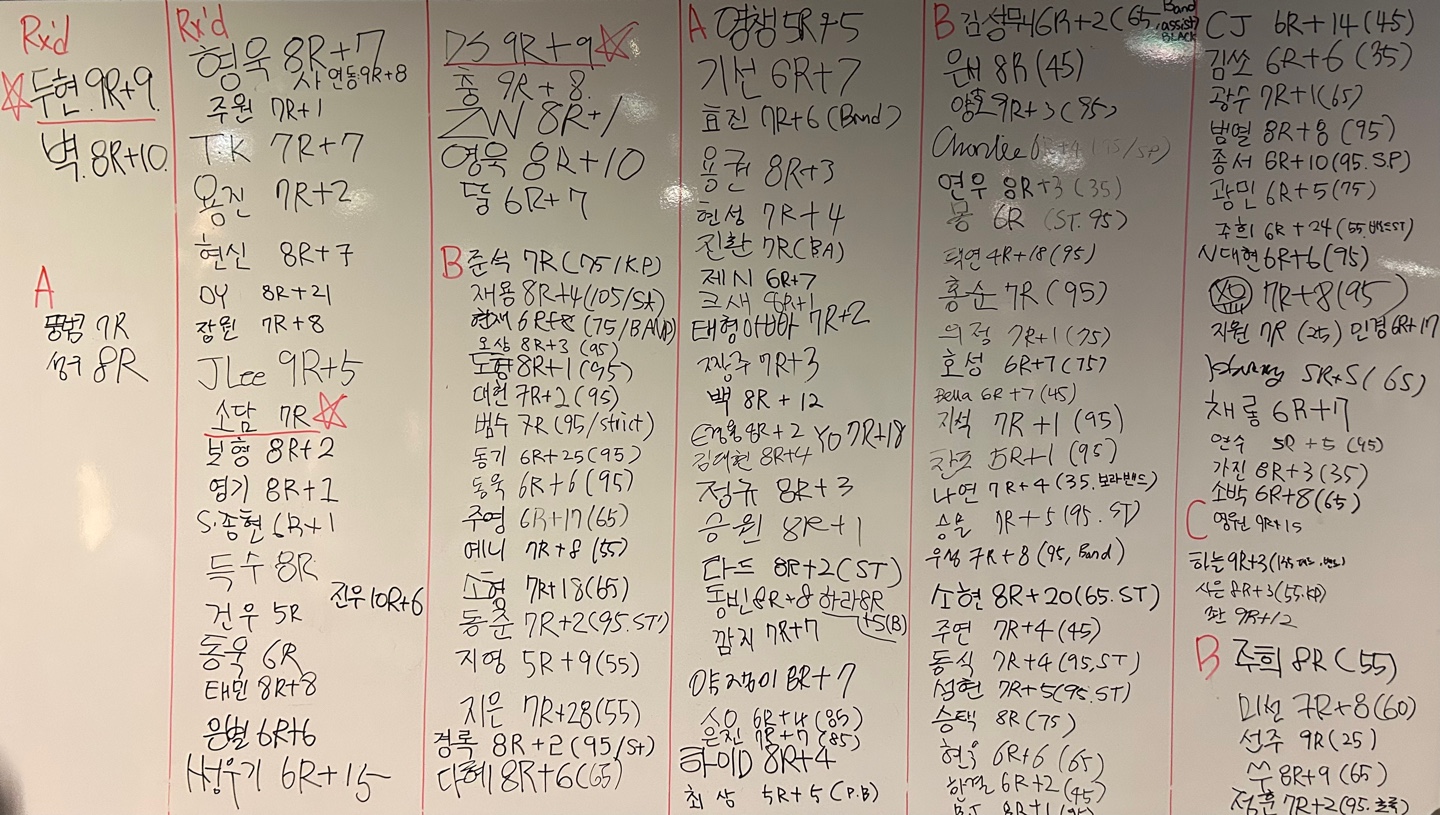 Rx'd
두현 9R+9
벽 8R+10
A
7R
성구 8R
Rx'd
형욱 8R+7
연동 9R+8
주원 7R+1
TK 7R+7
용진 7R+2
현신 8R+7
DY 8R+21
장원 7R+8
JLee 9R+5
소담 7R
보형 8R+2
엽기 8R+1
S.종현 6R+1
득수 8R
진우 10R+6
건우 5R
동욱 6R
태민 8R+8
은별 6R+6
6R+15
DS 9R+9
중 9R+8
ZW 8R+1
영욱 8R+10
둘 6R+7
B
준석 7R (75/KP)
재용 8R+4 (105/St)
현재 (75/BAND)
오상 8R+3 (95)
도형 8R+1 (95)
대원 7R+2 (95)
범수 7R (95/strict)
동기 6R+25 (95)
동욱 6R+6 (95)
주영 6R+17 (65)
예니 7R+8 (55)
소형 7R+18 (65)
동준 7R+2 (95.ST)
지영 5R+9 (55)
지은 7R+28 (55)
경록 8R+2 (95/St)
다혜 8R+6 (65)
A
영생 5R+5
기선 6R+7
효진 7R+6 (Band)
용권 8R+3
현성 7R+4
진환 7R (BA)
제N 6R+7
크새 8R+1
태형아빠 7R+2
짱구 7R+3
백 8R+12
8R+2 YO 7R+18
김대현 8R+4
정규 8R+3
승원 8R+1
다드 8R+2 (ST)
동빈 8R+8 하라 8R
+5(B)
깜지 7R+7
약쟁이 8R+7
6R+4 (85)
은진 7R+7 (85)
하이D 8R+4
최상 5R+5 (P.B)
B
김성무 6R+2 (65 Band
(assist)
BLACK
은비 8R (45)
양호 9R+3 (95)
Charlee
연우 8R+3 (35)
몽 6R (ST.95)
태연 4R+18 (95)
홍순 7R (95)
의정 7R+1 (75)
호성 6R+7 (75)
Bella 6R+7 (45)
지석 7R+1 (95)
찬조 5R+1 (95)
나연 7R+4 (35.보라밴드)
승물 7R+5 (95.ST)
우성 7R+8 (95, Band)
소현 8R+20 (65.ST)
주연 7R+4 (45)
동식 7R+4 (95,ST)
성현 7R+5 (95.ST)
승택 8R (75)
현욱 6R+6 (65)
한결 6R+2 (45)
8R+1
CJ 6R+14 (45)
김쏘 6R+6 (35)
광수 7R+1 (65)
범열 8R+8 (95)
종서 6R+10 (95.SP)
광민 6R+5 (75)
주희 6R+24 (55.밴드ST)
N대현 6R+6 (95)
7R+8 (95)
지원 7R (25) 민경 6R+17
5R+5 (65)
채롱 6R+7
연수 5R+5 (45)
가진 8R+3 (35)
소박 6R+8 (65)
C
영원 9R+15
하는 9R+3
시은 8R+3 (55.KP)
좌 9R+12
B
주희 8R (55)
미선 7R+8 (60)
선주 9R (25)
쑤 8R+9 (65)
정훈 7R+2 (95.초록)